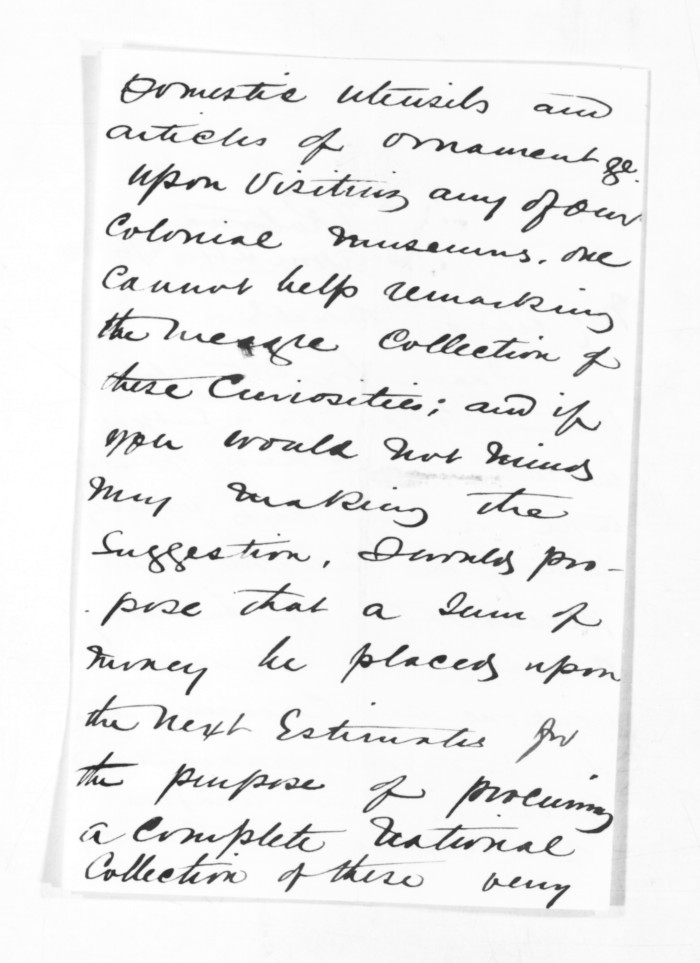 Domestic utensils and
articles of ornament &c.
Upon Visiting any of our
Colonial Museums, one
Cannot help remarking
the meagre Collection of
these Curiosities; and if
you would not mind
my making the
Suggestion, I would pro-
pose that a Sum of
money be placed upon
the next Estimates for
the purpose of procuring
a Complete National
Collection of these very